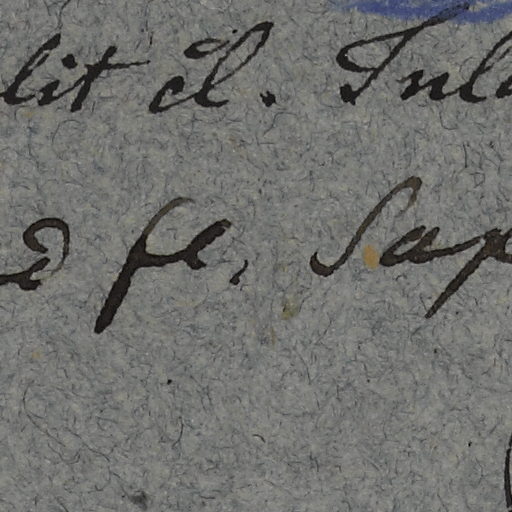 lit cl. Inl
d fl. Sap